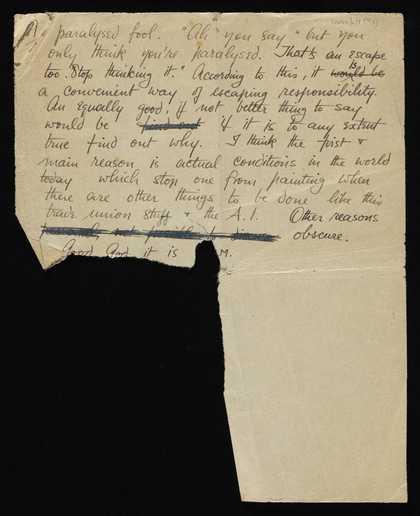 paralysed fool. "Ah" you say "but you
only think you're paralysed. That's an escape
too. Stop thinking it." According to this, it is
a convenient way of escaping responsibility.
An equally good, if not better thing to say
would be if it is to any extent
true find out why. I think the first &
main reason is actual conditions in the world
today which stop one from painting when
there are other things to be done like this
trade union stuff & the A.I. Other reasons
obscure.
Good God it is M.